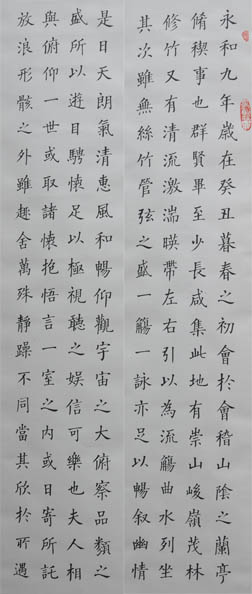 永和九年歲在癸丑暮春之初會於會稽山陰之蘭亭
脩禊事也群賢畢至少長咸集此地有崇山峻嶺茂林
修竹又有清流激湍暎帶左右引以為流觴曲水列坐
其次雖無絲竹管弦之盛一觴一詠亦足以暢叙幽情
是日天朗氣清惠風和暢仰觀宇宙之大俯察品類之
盛所以遊目騁懷足以極視聽之娛信可樂也夫人相
與俯仰一世或取諸懷抱悟言一室之內或日寄所託
放浪形骸之外雖趣舍萬殊靜躁不同當其欣於所遇